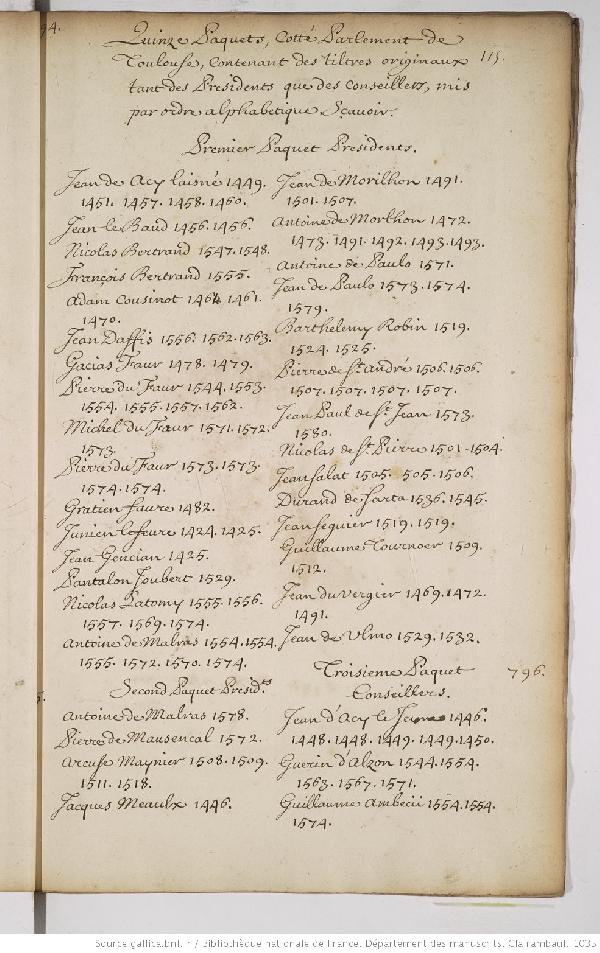 94.
Quinze Paquets, Cotté Parlement de
Toulouse, contenant des tiltres originaux 115.
tant des Presidents que des Conseillers, mis
par ordre alphabetique Sçavoir.
Premier Paquet Presidents.
Jean de Acy laisné 1449.
1451. 1457. 1458. 1460.
Jean le Baud 1456. 1456.
Nicolas Bertrand 1547. 1548.
François Bertrand 1555.
Adam Cousinot 1464. 1461.
1470.
Jean Daffis 1556. 1562. 1563.
Gacias Faur 1478. 1479.
Pierre du Faur 1544. 1553.
1554. 1555. 1557. 1562.
Michel du Faur 1571. 1572.
1573.
Pierre du Faur 1573. 1573.
1574. 1574.
Gratien faure 1482.
Junien lefeure 1424. 1425.
Jean Gencian 1425.
Pantalon Joubert 1529.
Nicolas Latomy 1555. 1556.
1557. 1569. 1574.
Antoine de Malras 1554. 1554.
1555. 1572. 1570. 1574.
Second Paquet Presid.ts
Antoine de Malras 1578.
Pierre de Mausencal 1572.
Arcuse Maynier 1508. 1509.
1511. 1518.
Jacques Meaulx 1446.
Jean de Morilhon 1491.
1501. 1507.
Antoine de Morlhon 1472.
1473. 1491. 1492. 1493. 1493.
Antoine de Paulo 1571.
Jean de Paulo 1573. 1574.
1579.
Barthelemy Robin 1519.
1524. 1525.
Pierre de St. André 1506. 1506.
1507. 1507. 1507. 1507.
Jean Paul de St. Jean 1573.
1580.
Nicolas de St. Pierre 1501. 1504.
Jean salat 1505. 505. 1506.
Durand de Sarta 1536. 1545.
Jean sequier 1519. 1519.
Guillaume Tournoer 1509.
1512.
Jean du vergier 1469. 1472.
1491.
Jean de Ulmo 1529. 1532.
Troisieme Paquet 796.
Conseillers.
Jean d'Acy le Jeune 1446.
1448. 1448. 1449. 1449. 1450.
Guerin d'Alzon 1544. 1554.
1563. 1567. 1571.
Guillaume Ambecii 1554. 1554.
1574.
Source gallica.bnf.fr / Bibliothèque nationale de France. Département des manuscrits. Clairambault 1035